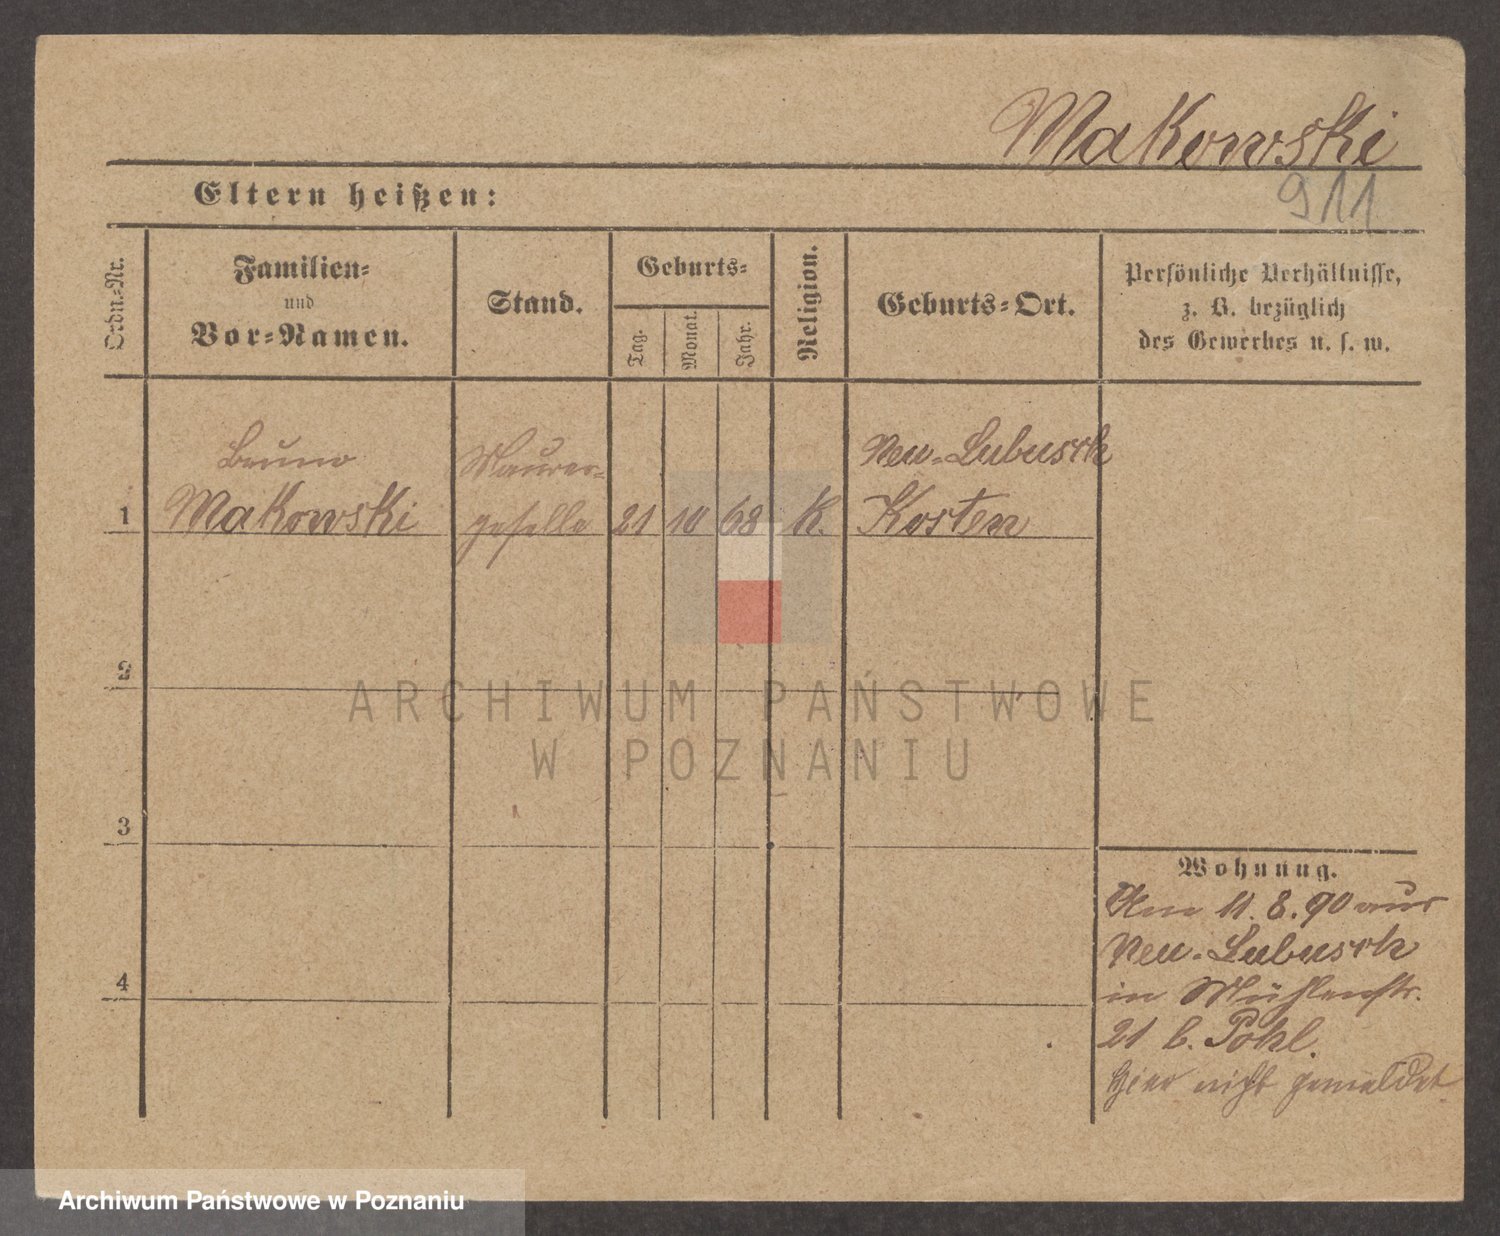 Makowski
911
Eltern heißen:
Ordn.-Nr.
Familien-
und
Vor-Namen.
Stand.
Geburts-
Tag.
Monat.
Jahr.
Religion.
Geburts-Ort.
Persönliche Verhältnisse,
z. B. bezüglich
des Gewerbes u. s. w.
1
Bruno
Makowski
Maurer-
geselle
21
10
68
K.
Neu-Lubusch
Kosten
2
3
4
Wohnung.
Am 11.8.90 aus
Neu-Lubusch
in Mühlenstr.
21 b. Pohl.
hier nicht gemeldet
ARCHIWUM PAŃSTWOWE
W POZNANIU
Archiwum Państwowe w Poznaniu